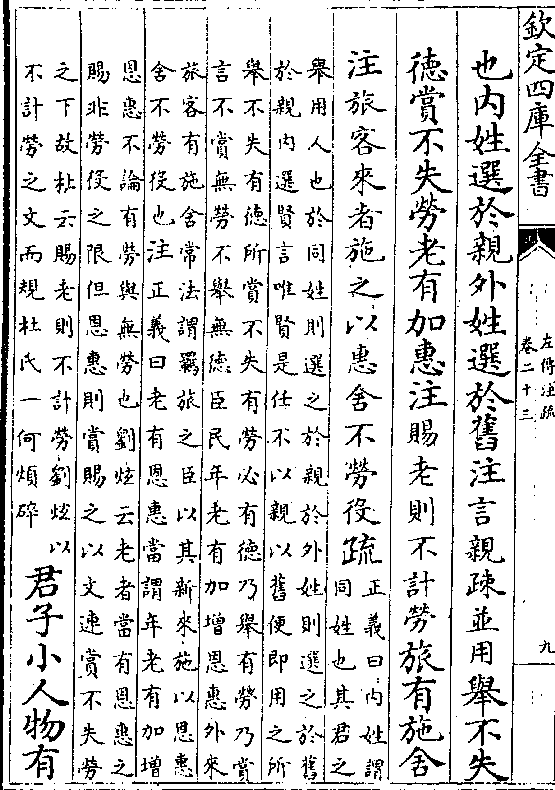 欽定四庫全書
左傳注疏
卷二十三
九
也内姓選於親外姓選於舊注言親疎並用舉不失
德賞不失勞老有加惠注賜老則不計勞旅有施舍
注旅客來者施之以惠舍不勞役疏
正義曰内姓謂
同姓也其君之
舉用人也於同姓則選之於親於外姓則選之於舊
於親内選賢言唯賢是任不以親以舊便即用之所
舉不失有德所賞不失有勞必有德乃舉有勞乃賞
言不賞無勞不舉無德臣民年老有加增恩惠外來
旅客有施舍常法謂羇旅之臣以其新來施以恩惠
舍不勞役也注正義曰老有恩惠當謂年老有加增
恩惠不論有勞與無勞也劉炫云老者當有恩惠之
賜非勞役之限但恩惠則賞賜之以文連賞不失勞
之下故杜云賜老則不計勞劉炫以
不計勞之文而規杜氏一何煩碎
君子小人物有